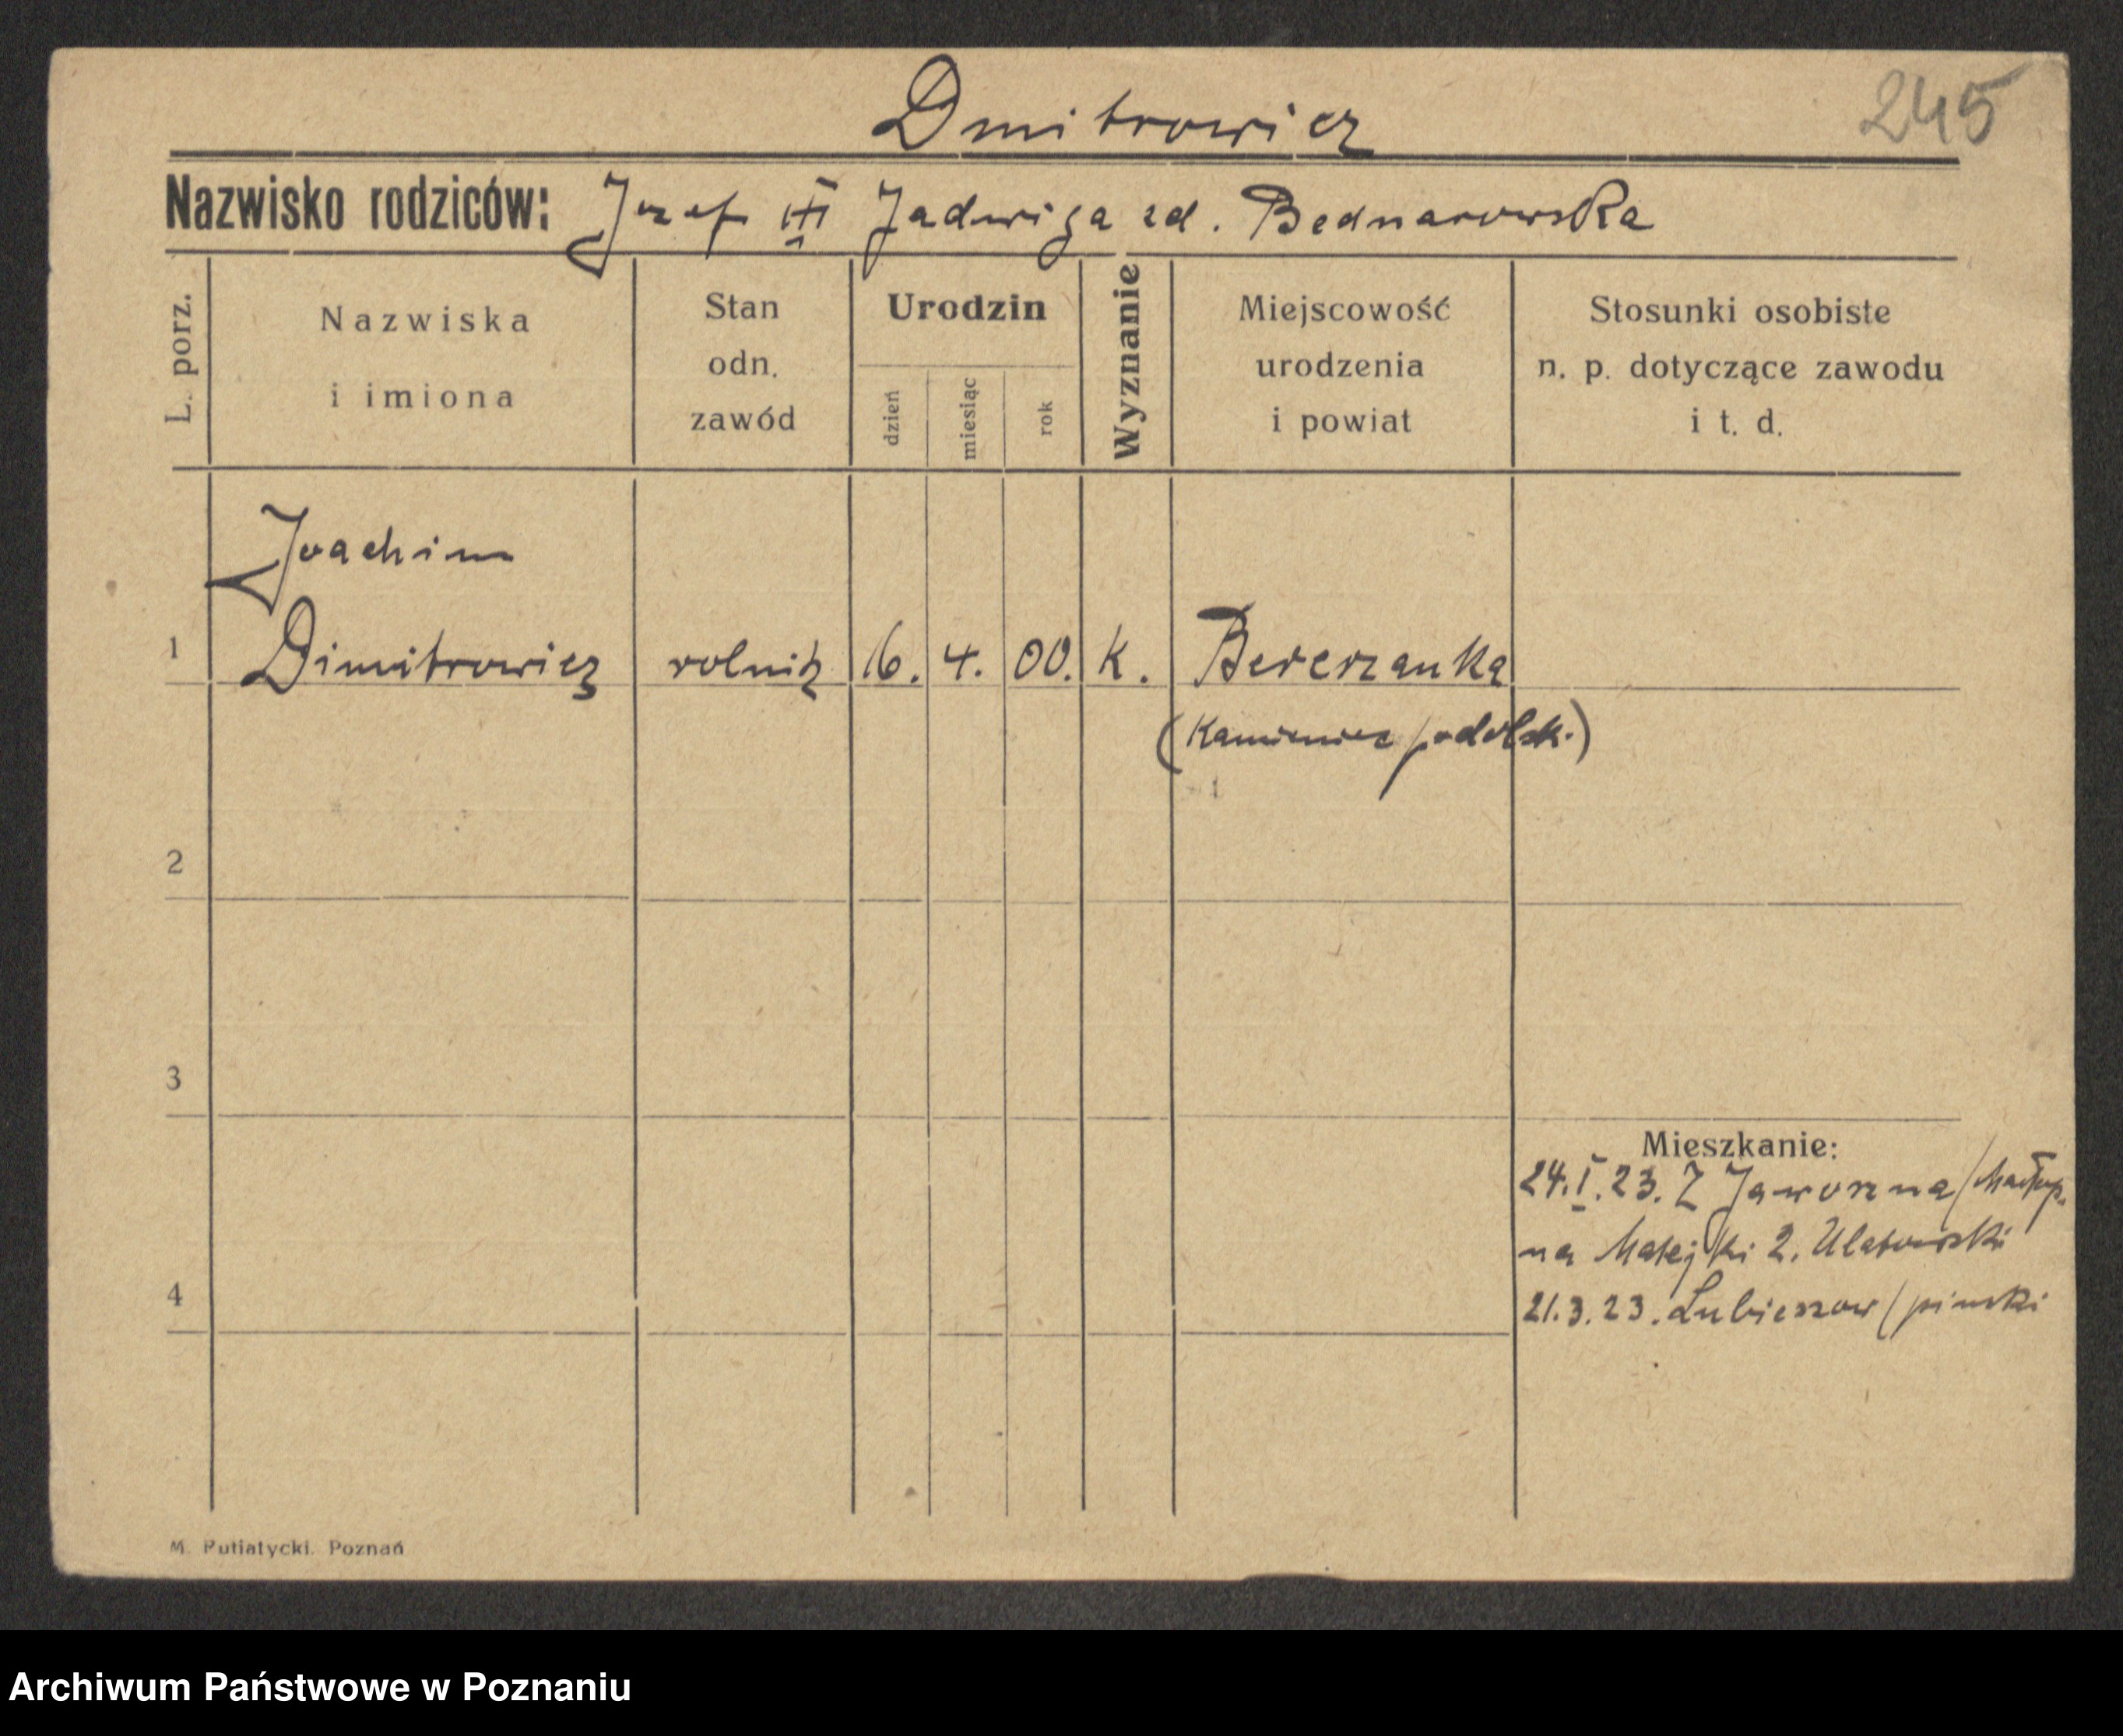 Dmitrowicz
245
Nazwisko rodziców: Jozef III Jadwiga zd. Bednarowska
L. porz.
Nazwiska
i imiona
Stan
odn.
zawód
Urodzin
dzień
miesiąc
rok
Wyznanie
Miejscowość
urodzenia
i powiat
Stosunki osobiste
n. p. dotyczące zawodu
i t. d.
Joachim
1 Dimitrowicz rolnik 16. 4. 00. K. Berezanka
(Kamieniec podolsk.)
2
3
Mieszkanie:
24.I.23. Z Jaworzna/Małop.
na Matejki 2. Ulatowski
4
21.3.23. Lubieszow/pinski
M. Putiatycki. Poznań
Archiwum Państwowe w Poznaniu